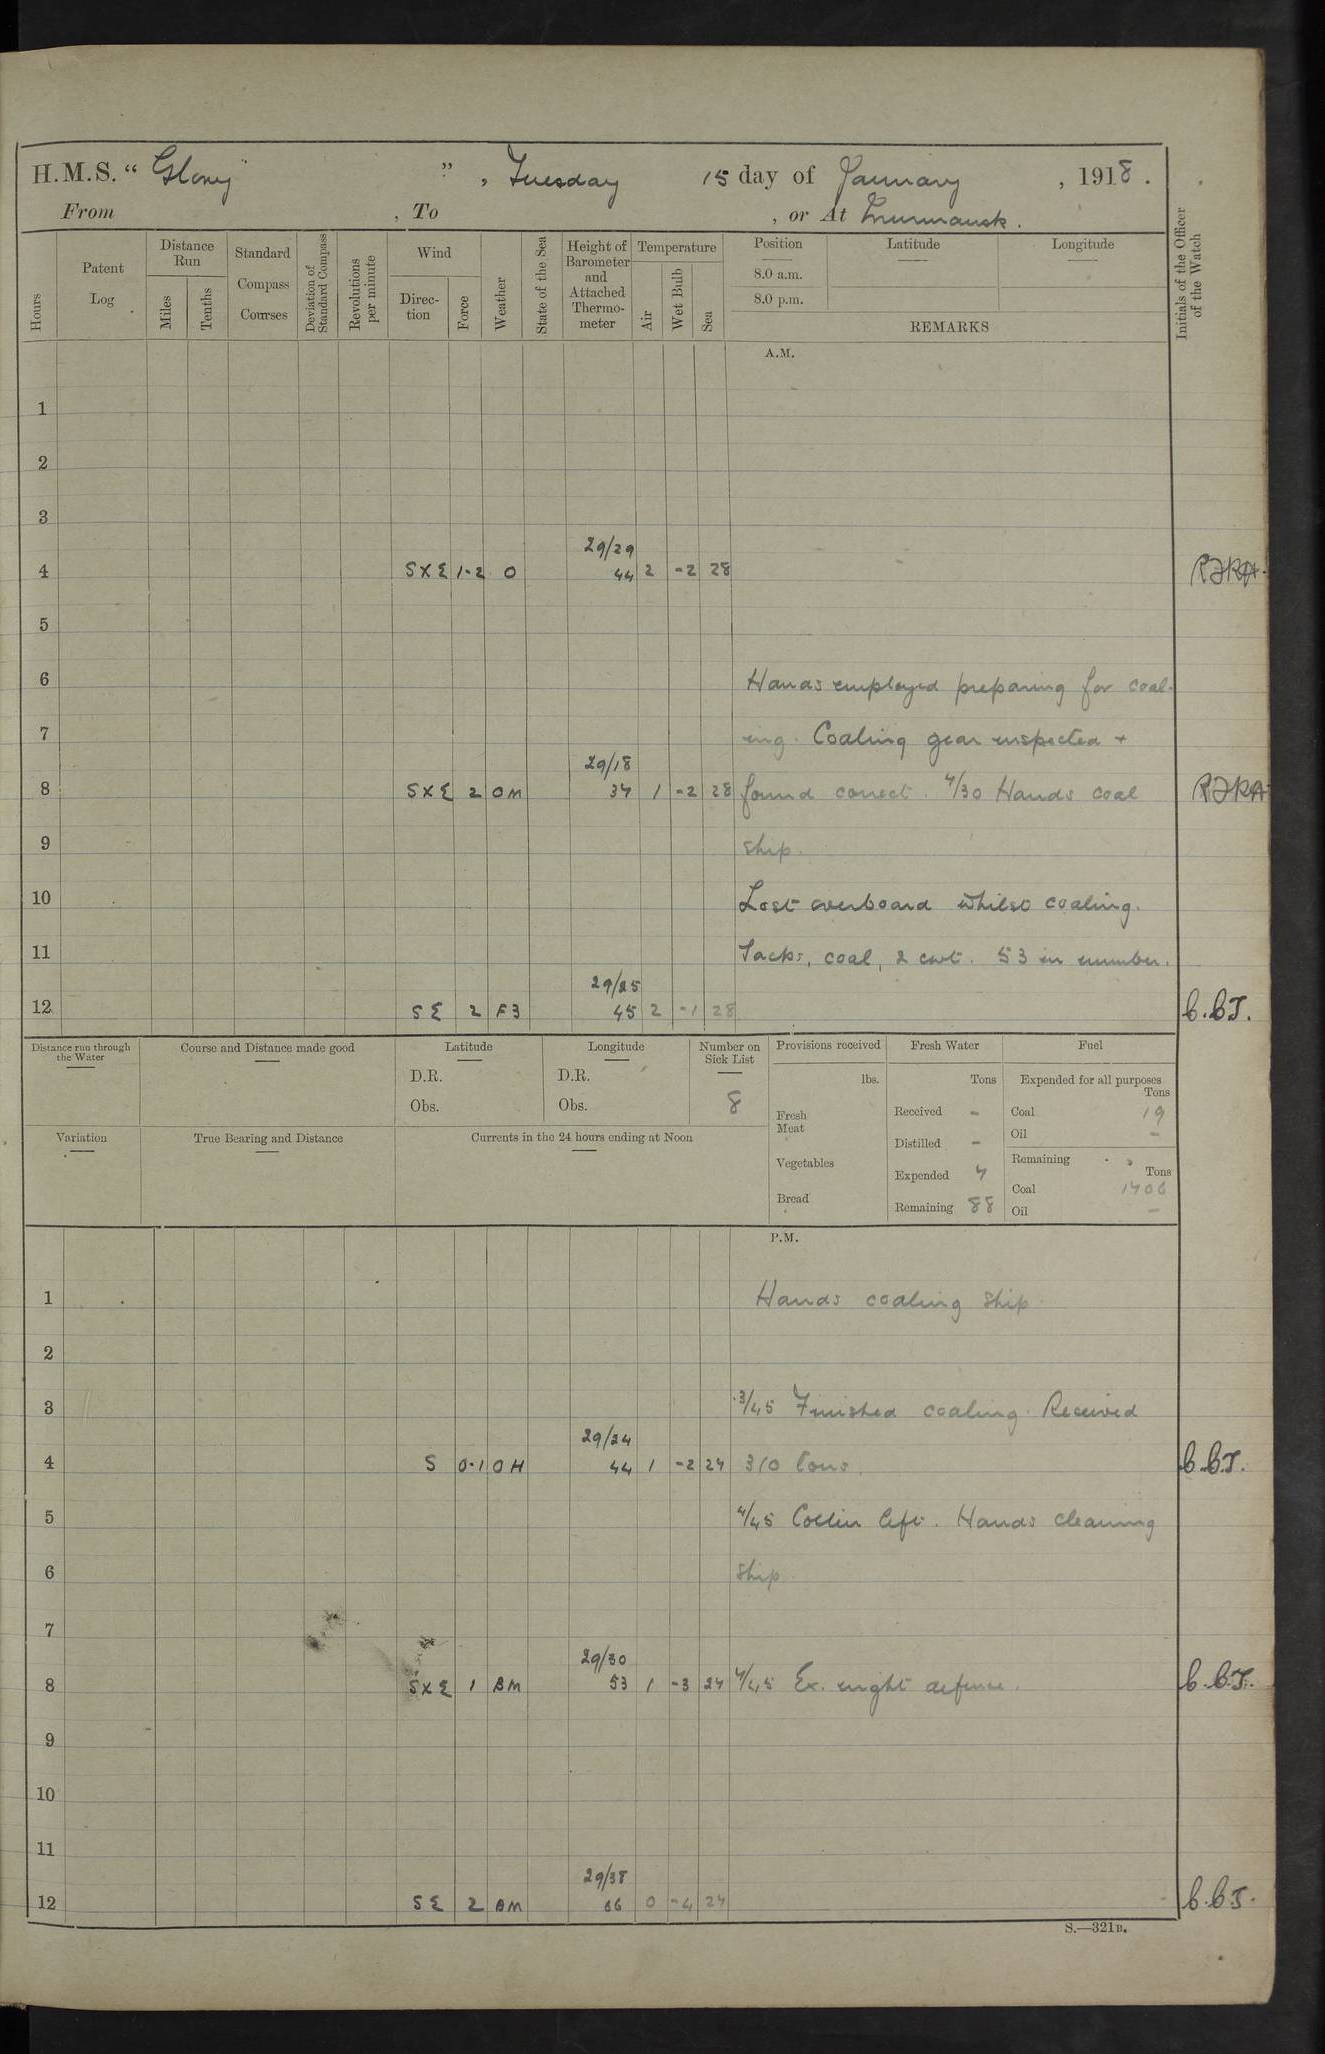 H.M.S. “ Glory ” , Tuesday 15 day of January , 1918 .
From , To , or At Murmansk .
Hours
Patent Log
Distance Run
Miles
Tenths
Standard Compass Courses
Deviation of Standard Compass
Revolutions per minute
Wind
Direction
Force
Weather
State of the Sea
Height of Barometer and Attached Thermometer
Temperature
Air
Wet Bulb
Sea
Position
8.0 a.m.
8.0 p.m.
Latitude
Longitude
REMARKS
Initials of the Officer of the Watch
A.M.
1
2
3
29/29
4 SXE 1-2 O 44 2 -2 28
5
6 Hands employed preparing for coal-
7 ing. Coaling gear inspected +
29/18
8 SXE 2 OM 37 1 -2 28 found correct. 7/30 Hands coal
9 ship.
10 Lost overboard whilst coaling.
11 Sacks, coal, 2 cwt. 53 in number.
29/25
12 SE 2 F3 45 2 -1 28
Distance run through the Water
Course and Distance made good
Latitude
D.R.
Obs.
Longitude
D.R.
Obs.
Number on Sick List
8
Variation
True Bearing and Distance
Currents in the 24 hours ending at Noon
Provisions received
lbs.
Fresh Meat
Vegetables
Bread
Fresh Water
Tons
Received -
Distilled -
Expended 7
Remaining 88
Fuel
Expended for all purposes
Tons
Coal 19
Oil -
Remaining
Tons
Coal 1706
Oil -
P.M.
1 Hands coaling ship.
2
3 3/45 Finished coaling. Received
29/24
4 S 0-1 OH 44 1 -2 27 310 tons.
5 4/45 Collier left. Hands cleaning
6 ship
7
29/30
8 SXE 1 BM 53 1 -3 27 7/45 Ex. night defence.
9
10
11
29/38
12 SE 2 BM 0 -4 27
S.—321B.